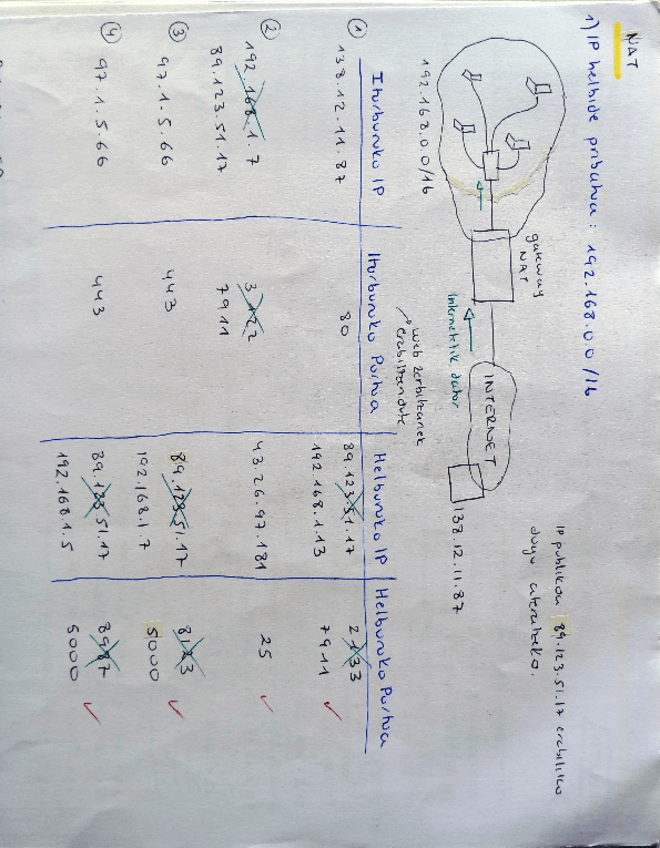 NAT
1) IP helbide pribatua: 192.168.0.0/16
IP publikoa 89.123.51.17 erabiliko
dugu ateratzeko.
gateway
NAT
INTERNET
138.12.11.87
192.168.0.0/16
internetetik dator
web zerbitzariek
erabiltzen dute
Iturburuko IP Iturburuko Portua Helburuko IP Helburuko Portua
89.123.51.17
① 138.12.11.87 80 192.168.1.13 7911 ✓
② 192.168.1.7
89.123.51.17 7911 43.26.97.181 25 ✓
③ 97.1.5.66 443 89.123.51.17 8123
192.168.1.7 5000 ✓
④ 97.1.5.66 443 89.123.51.17 8987
192.168.1.5 5000 ✓